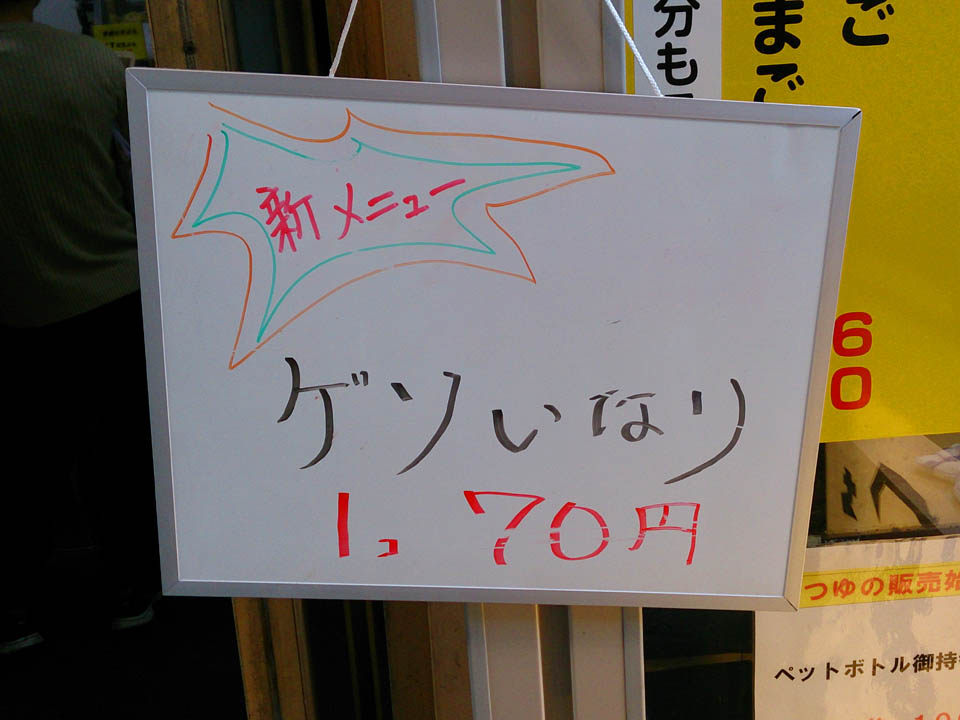 新メニュー
ゲソいなり
1コ 70円
分も
まご
ご
60
つゆの販売
ペットボトル御持